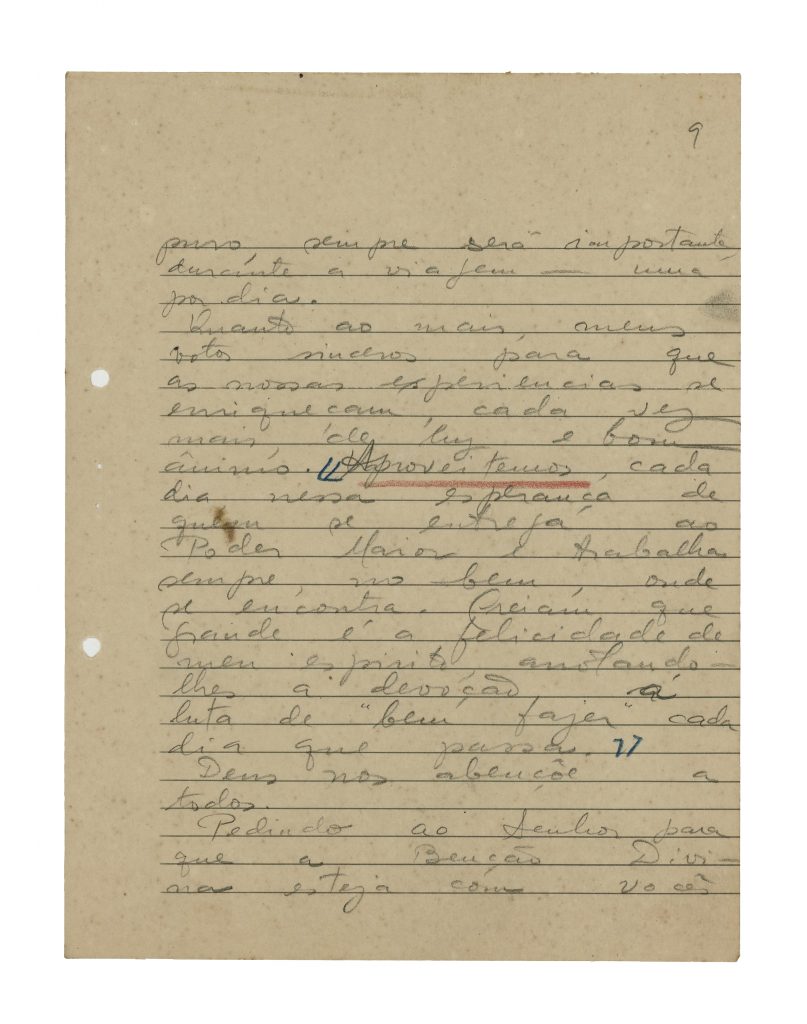 9
puro, sempre será importante,
durante a viagem — uma
por dia.
Quanto ao mais, meus
votos sinceros para que
as nossas experiencias se
enriqueçam, cada vez
mais, de luz e bom
ânimo. "Aproveitemos, cada
dia nessa esperança de
quem se entrega ao
Poder Maior e trabalha
sempre, no bem, onde
se encontra. Creiam que
grande é a felicidade de
meu espirito, anotando-
lhes a devoção, á
luta de "bem fazer" cada
dia que passa."
Deus nos abençõe a
todos.
Pedindo ao Senhor para
que a Benção Divi-
na esteja com vocês